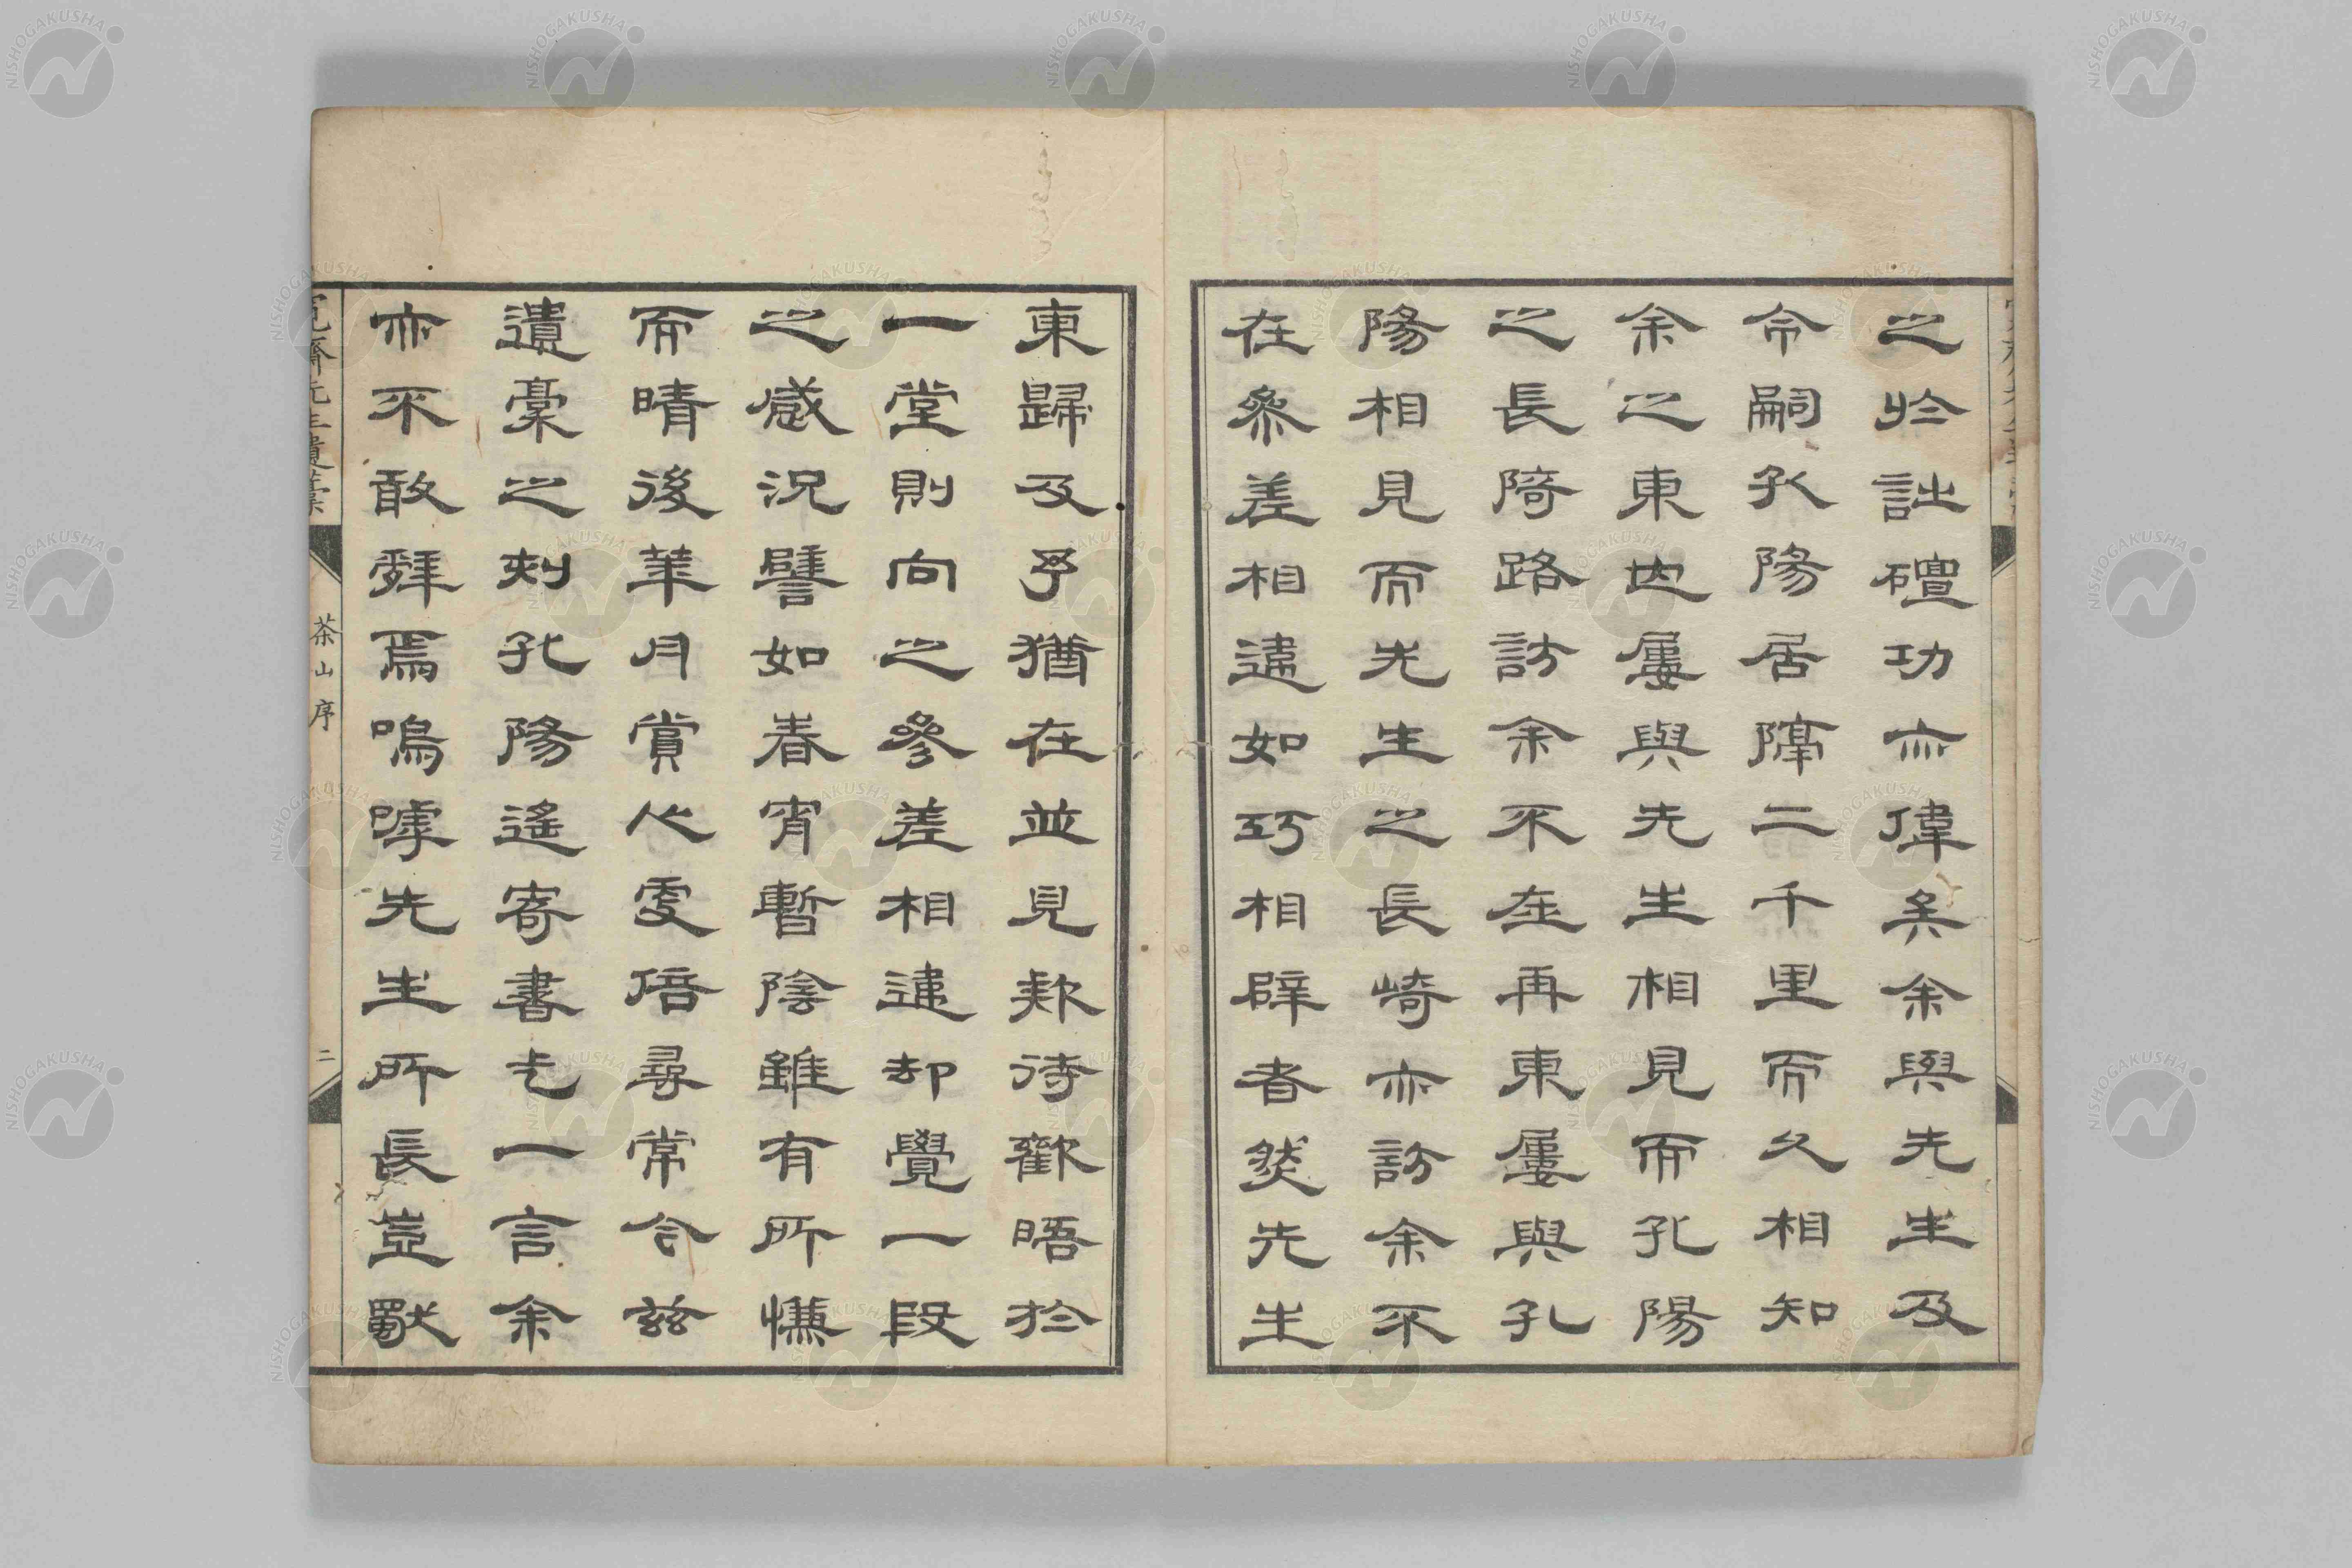 之於詘礌功亦偉矣余與先生及
令嗣孔陽居障二千里而久相知
余之東也屢與先生相見而孔陽
之長陭路訪余不在再東屢與孔
陽相見而先生之長崎亦訪余不
在參差相違如巧相避者然先生
東歸及予猶在並見欵待歡晤於
一堂則向之參差相違却覺一段
之感況譬如春宵暫陰雖有所慊
而晴後華月賞心更倍尋常今茲
遺稾之刻孔陽遙寄書乞一言余
亦不敢辭焉嗚嘑先生所長豈獸
寬齋先生遺稾
茶山序
二
NISHOGAKUSHA